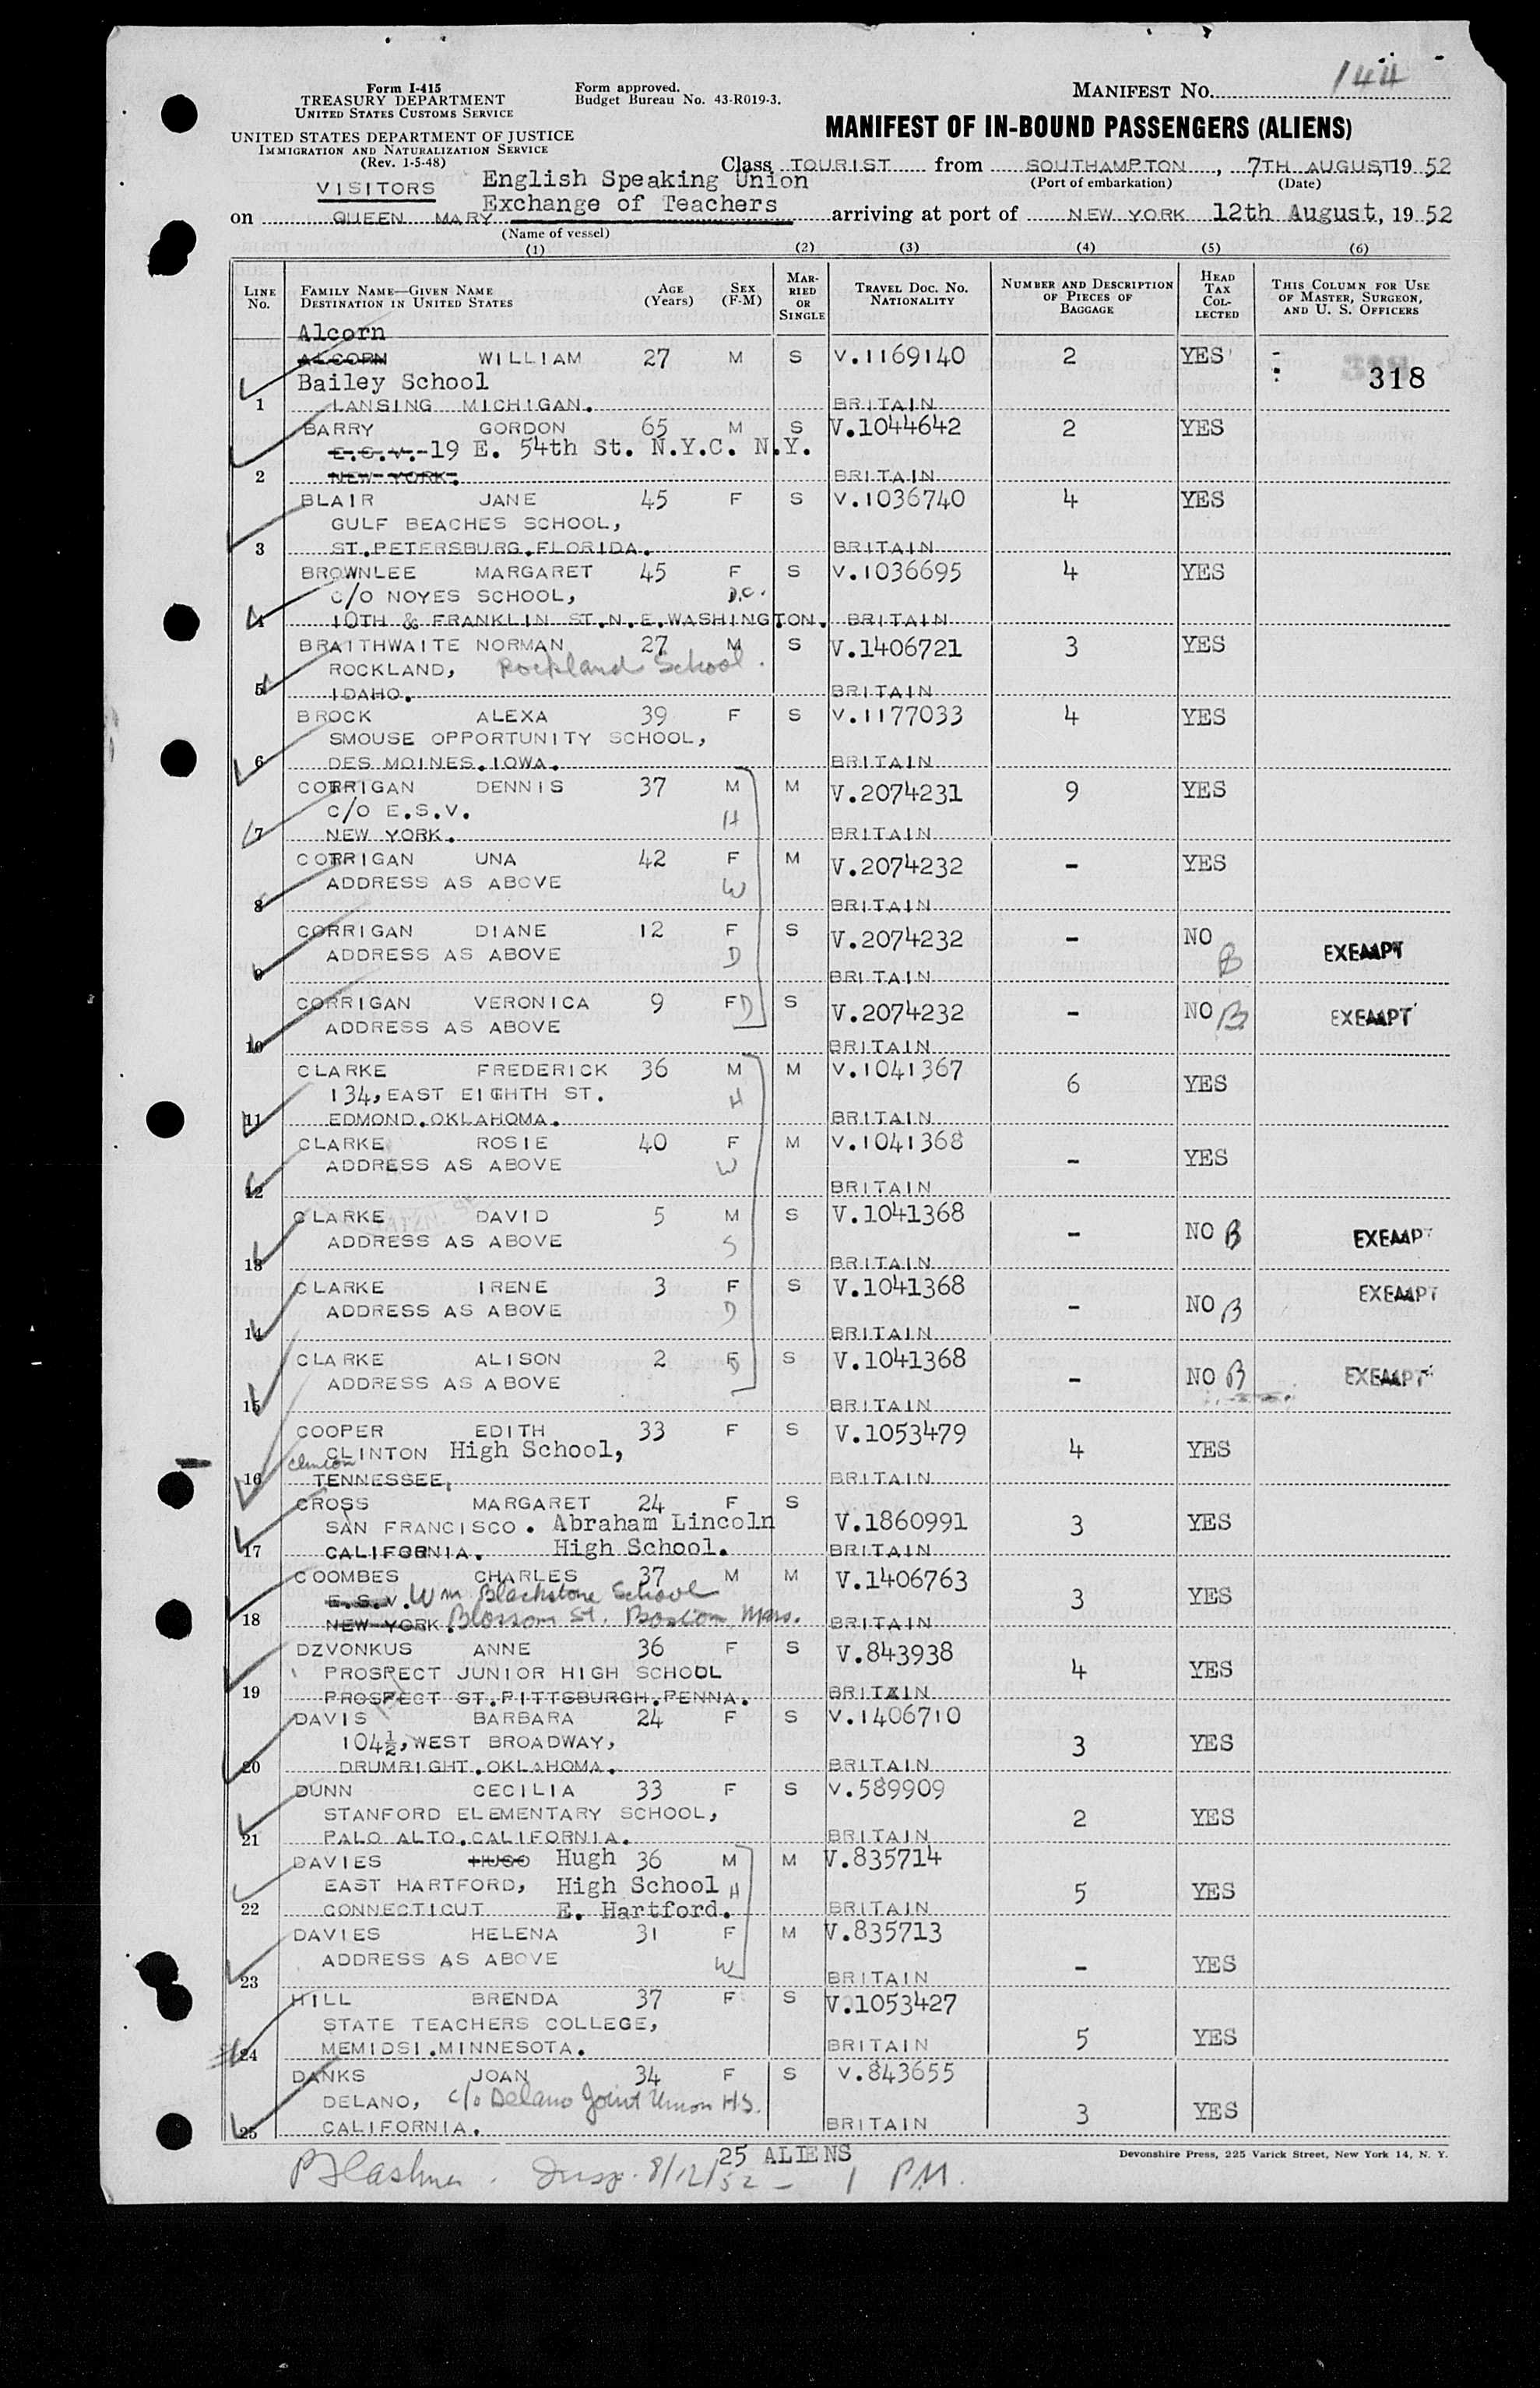 144
Form I-415
TREASURY DEPARTMENT
UNITED STATES CUSTOMS SERVICE
UNITED STATES DEPARTMENT OF JUSTICE
IMMIGRATION AND NATURALIZATION SERVICE
(Rev. 1-5-48)
Form approved.
Budget Bureau No. 43-R019-3.
MANIFEST NO.
MANIFEST OF IN-BOUND PASSENGERS (ALIENS)
Class TOURIST from SOUTHAMPTON, 7TH AUGUST, 19 52
(Port of embarkation) (Date)
VISITORS English Speaking Union
Exchange of Teachers
on QUEEN MARY arriving at port of NEW YORK 12th August, 19 52
(Name of vessel)
(1) (2) (3) (4) (5) (6)
LINE No. FAMILY NAME—GIVEN NAME DESTINATION IN UNITED STATES AGE (Years) SEX (F-M) MARRIED OR SINGLE TRAVEL DOC. NO. NATIONALITY NUMBER AND DESCRIPTION OF PIECES OF BAGGAGE HEAD TAX COLLECTED THIS COLUMN FOR USE OF MASTER, SURGEON, AND U. S. OFFICERS
Alcorn
ALCORN WILLIAM 27 M S V.1169140 2 YES 318
Bailey School
1 LANSING MICHIGAN. BRITAIN
BARRY GORDON 65 M S V.1044642 2 YES
E.S.V. 19 E. 54th St. N.Y.C. N.Y.
2 NEW YORK. BRITAIN
BLAIR JANE 45 F S V.1036740 4 YES
GULF BEACHES SCHOOL,
3 ST.PETERSBURG.FLORIDA. BRITAIN
BROWNLEE MARGARET 45 F S V.1036695 4 YES
C/O NOYES SCHOOL, D.C.
4 10TH & FRANKLIN ST.N.E.WASHINGTON. BRITAIN
BRAITHWAITE NORMAN 27 M S V.1406721 3 YES
ROCKLAND, Rockland School.
5 IDAHO. BRITAIN
BROCK ALEXA 39 F S V.1177033 4 YES
SMOUSE OPPORTUNITY SCHOOL,
6 DES MOINES.IOWA. BRITAIN
CORRIGAN DENNIS 37 M M V.2074231 9 YES
C/O E.S.V. H
7 NEW YORK. BRITAIN
CORRIGAN UNA 42 F M V.2074232 - YES
ADDRESS AS ABOVE W
8 BRITAIN
CORRIGAN DIANE 12 F S V.2074232 - NO B EXEMPT
ADDRESS AS ABOVE D
9 BRITAIN
CORRIGAN VERONICA 9 F D S V.2074232 - NO B EXEMPT
ADDRESS AS ABOVE
10 BRITAIN
CLARKE FREDERICK 36 M M V.1041367 6 YES
134, EAST EIGHTH ST. H
11 EDMOND.OKLAHOMA. BRITAIN
CLARKE ROSIE 40 F M V.1041368 - YES
ADDRESS AS ABOVE W
12 BRITAIN
CLARKE DAVID 5 M S V.1041368 - NO B EXEMPT
ADDRESS AS ABOVE S
13 BRITAIN
CLARKE IRENE 3 F S V.1041368 - NO B EXEMPT
ADDRESS AS ABOVE D
14 BRITAIN
CLARKE ALISON 2 F D S V.1041368 - NO B EXEMPT
ADDRESS AS ABOVE
15 BRITAIN
COOPER EDITH 33 F S V.1053479 4 YES
CLINTON High School,
Clinton
16 TENNESSEE, BRITAIN
CROSS MARGARET 24 F S V.1860991 3 YES
SAN FRANCISCO. Abraham Lincoln
17 CALIFORNIA. High School. BRITAIN
COOMBES CHARLES 37 M M V.1406763 3 YES
E.S.V. Wm Blackstone School
18 NEW YORK. Blossom St. Boston, Mass. BRITAIN
DZVONKUS ANNE 36 F S V.843938 4 YES
PROSPECT JUNIOR HIGH SCHOOL
19 PROSPECT ST.PITTSBURGH.PENNA. BRITAIN
DAVIS BARBARA 24 F S V.1406710 3 YES
104½, WEST BROADWAY,
20 DRUMRIGHT.OKLAHOMA. BRITAIN
DUNN CECILIA 33 F S V.589909 2 YES
STANFORD ELEMENTARY SCHOOL,
21 PALO ALTO.CALIFORNIA. BRITAIN
DAVIES HUGO Hugh 36 M M V.835714 5 YES
EAST HARTFORD, High School H
22 CONNECTICUT E. Hartford. BRITAIN
DAVIES HELENA 31 F M V.835713 - YES
ADDRESS AS ABOVE W
23 BRITAIN
HILL BRENDA 37 F S V.1053427 5 YES
STATE TEACHERS COLLEGE,
24 MEMIDSI.MINNESOTA. BRITAIN
DANKS JOAN 34 F S V.843655 3 YES
DELANO, c/o Delano Joint Union H.S.
25 CALIFORNIA. BRITAIN
25 ALIENS
Devonshire Press, 225 Varick Street, New York 14, N. Y.
Insp. 8/12/52 - 1 PM.